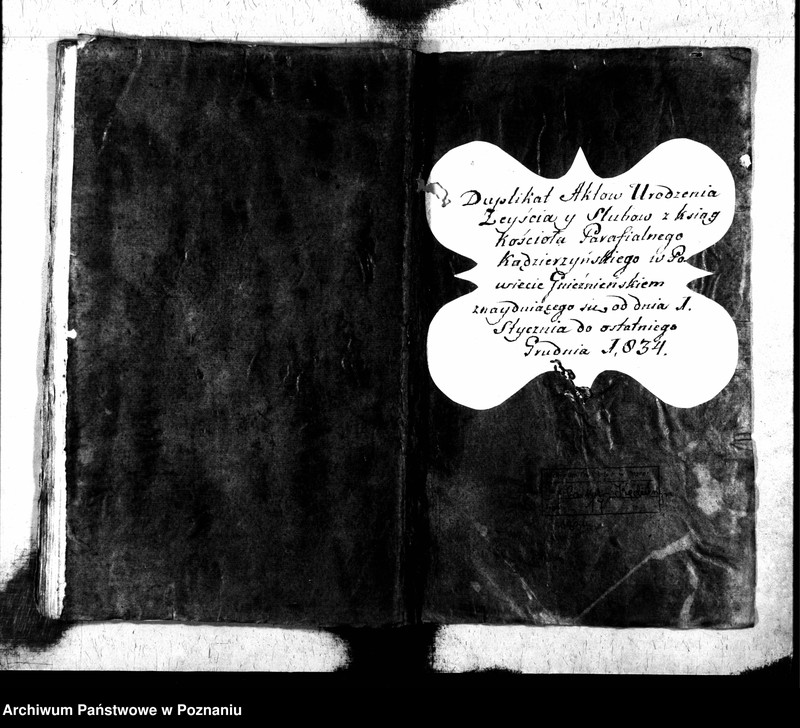 Duplikat Aktow Urodzenia
Zeyścia y Slubow z ksiąg
Kościoła Parafialnego
Kądzierzyńskiego w Po
wiecie Gnieźnieńskiem
znayduiącego się od dnia 1.
Stycznia do ostatniego
Grudnia 1,834.
Archiwum Państwowe w Poznaniu